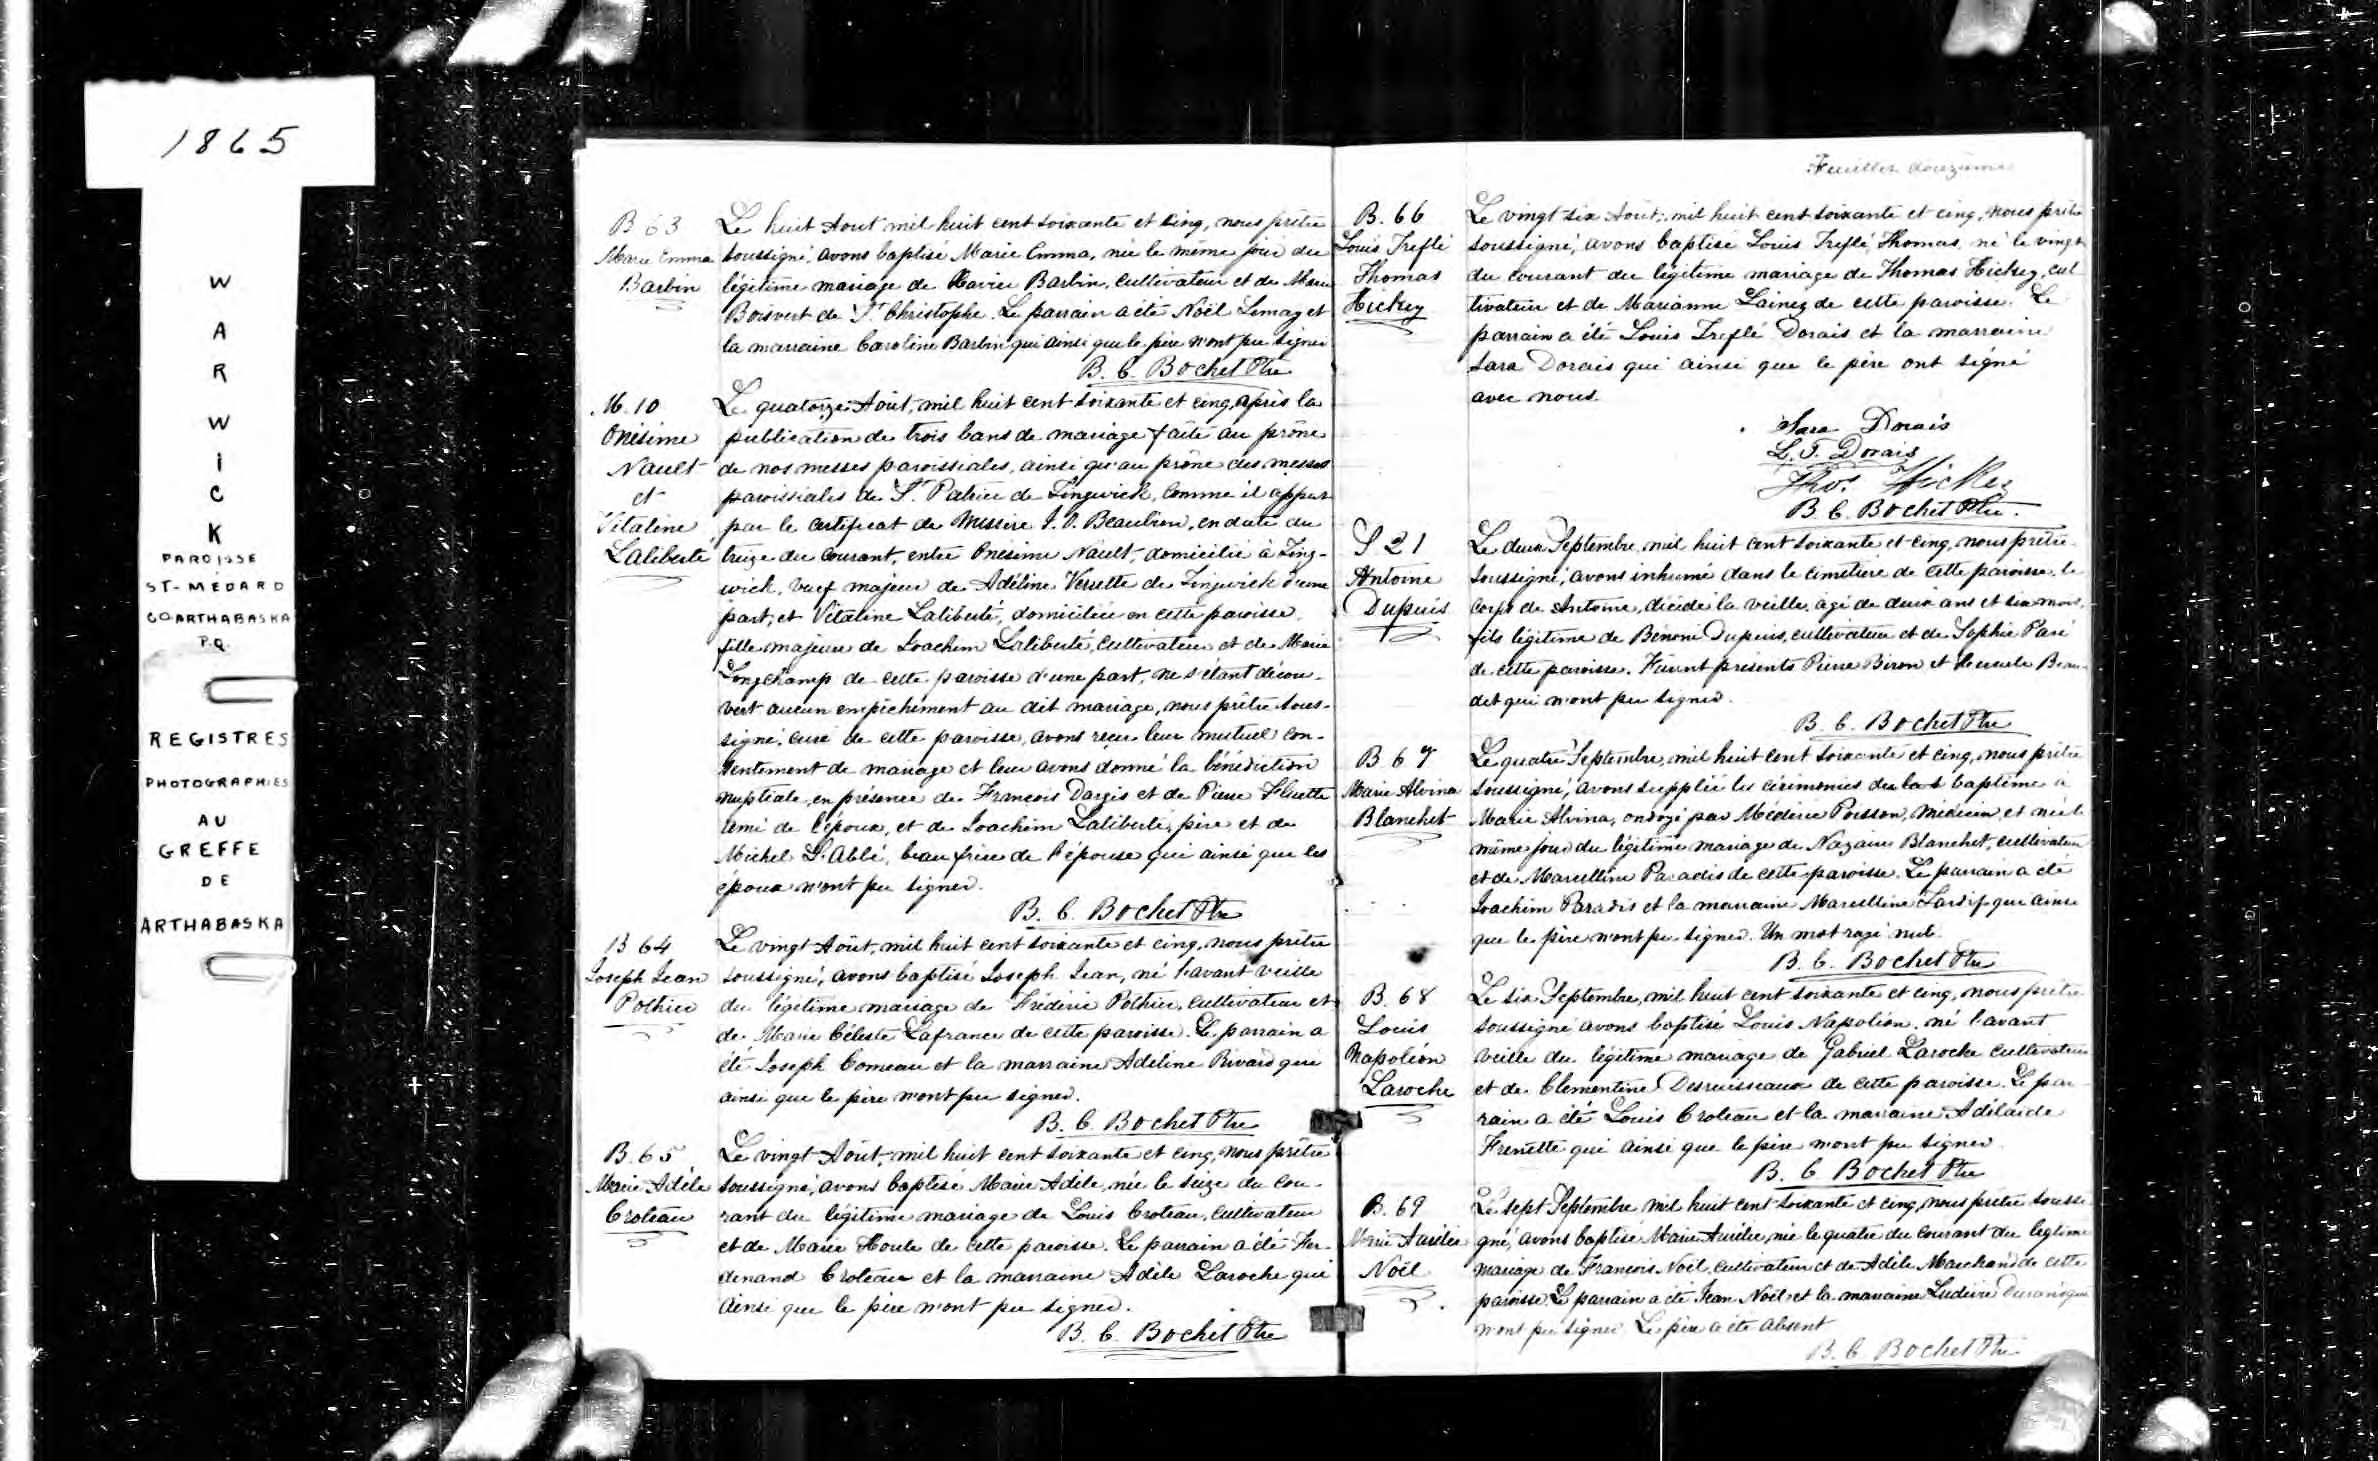 1865
WARWICK
PAROISSE
ST-MEDARD
CO ARTHABASKA
P.Q.
REGISTRES
PHOTOGRAPHIES
AU
GREFFE
DE
ARTHABASKA
B 63
Marie Emma
Barbin
Le huit Aout mil huit cent soixante et cinq, nous prêtre
soussigné, avons baptisé Marie Emma, née le même jour du
légitime mariage de Xavier Barbin, cultivateur et de Marie
Boisvert de St. Christophe. Le parrain a été Noël Lemay et
la marraine Caroline Barbin qui ainsi que le père n'ont pu signer
B. C. Bochet Ptre
M. 10
Onésime
Nault
et
Vitaline
Laliberté
Le quatorze Août, mil huit cent soixante et cinq, après la
publication de trois bans de mariage faite au prône
de nos messes paroissiales, ainsi qu'au prône des messes
paroissiales de St. Patrice de Tingwick, comme il appert
par le certificat de Messire J. O. Beaubien, en date du
treize du courant, entre Onésime Nault, domicilié à Ting-
wick, veuf majeur de Adéline Verrette de Tingwick d'une
part, et Vitaline Laliberté, domiciliée en cette paroisse,
fille majeure de Joachim Laliberté, cultivateur et de Marie
Longchamp de cette paroisse d'une part, ne s'étant décou-
vert aucun empêchement au dit mariage, nous prêtre sous-
signé, curé de cette paroisse, avons reçu leur mutuel con-
sentement de mariage et leur avons donné la bénédiction
nuptiale, en présence de François Dargis et de Pierre
ami de l'époux, et de Joachim Laliberté, père et de
Michel beau frère de l'épouse qui ainsi que les
époux n'ont pu signer.
B. C. Bochet Ptre
B 64
Joseph Jean
Pothier
Le vingt Août, mil huit cent soixante et cinq, nous prêtre
soussigné, avons baptisé Joseph Jean, né l'avant veille
du légitime mariage de Frédéric Pothier, cultivateur et
de Marie Céleste Lafrance de cette paroisse. Le parrain a
été Joseph Comeau et la marraine Adéline Rivard qui
ainsi que le père n'ont pu signer.
B. C. Bochet Ptre
B. 65
Marie Adèle
Croteau
Le vingt Août, mil huit cent soixante et cinq, nous prêtre
soussigné, avons baptisé Marie Adèle, née le seize du cou-
rant du légitime mariage de Louis Croteau, cultivateur
et de Marie Houle de cette paroisse. Le parrain a été Fer-
dinand Croteau et la marraine Adèle Laroche qui
ainsi que le père n'ont pu signer.
B. C. Bochet Ptre
Feuillet douzième
B. 66
Louis Treflé
Thomas
Hickey
Le vingt six Août, mil huit cent soixante et cinq, nous prêtre
soussigné, avons baptisé Louis Treflé Thomas, né le vingt
du courant du légitime mariage de Thomas Hickey, cul
tivateur et de Marianne Lainez de cette paroisse. Le
parrain a été Louis Treflé Dorais et la marraine
Sara Dorais qui ainsi que le père ont signé
avec nous.
Sara Dorais
L. T. Dorais
Thos. Hickey
B. C. Bochet Ptre.
S 21
Antoine
Dupuis
Le deux Septembre, mil huit cent soixante et cinq, nous prêtre
soussigné, avons inhumé dans le cimetière de cette paroisse, le
corps de Antoine, décédé la veille, âgé de deux ans et six mois,
fils légitime de Bénoni Dupuis, cultivateur et de Sophie Paré
de cette paroisse. Furent présents Pierre Biron et Hercule Beau-
det qui n'ont pu signer.
B. C. Bochet Ptre
B 67
Marie Alvina
Blanchet
Le quatre Septembre, mil huit cent soixante et cinq, nous prêtre
soussigné, avons supplié les cérémonies du baptême à
Marie Alvina, ondoyé par Médéric Poisson, médecin et née le
même jour du légitime mariage de Nazaire Blanchet, cultivateur
et de Marcelline Paradis de cette paroisse. Le parrain a été
Joachim Paradis et la marraine Marcelline Tardif qui ainsi
que le père n'ont pu signer. Un mot rayé nul.
B. C. Bochet Ptre
B. 68
Louis
Napoléon
Laroche
Le six Septembre, mil huit cent soixante et cinq, nous prêtre
soussigné avons baptisé Louis Napoléon, né l'avant
veille du légitime mariage de Gabriel Laroche cultivateur
et de Clementine Desruisseaux de cette paroisse. Le par-
rain a été Louis Croteau et la marraine Adélaide
Frenette qui ainsi que le père n'ont pu signer
B. C. Bochet Ptre
B. 69
Marie Aurélie
Noël
Le sept Septembre mil huit cent soixante et cinq, nous prêtre soussi
gné, avons baptisé Marie Aurélie, née le quatre du courant du légitime
mariage de François Noël, cultivateur et de Adèle Marchand de cette
paroisse. Le parrain a été Jean Noël et la marraine Ludivine qui
n'ont pu signer. Le père a été absent
B. C. Bochet Ptre